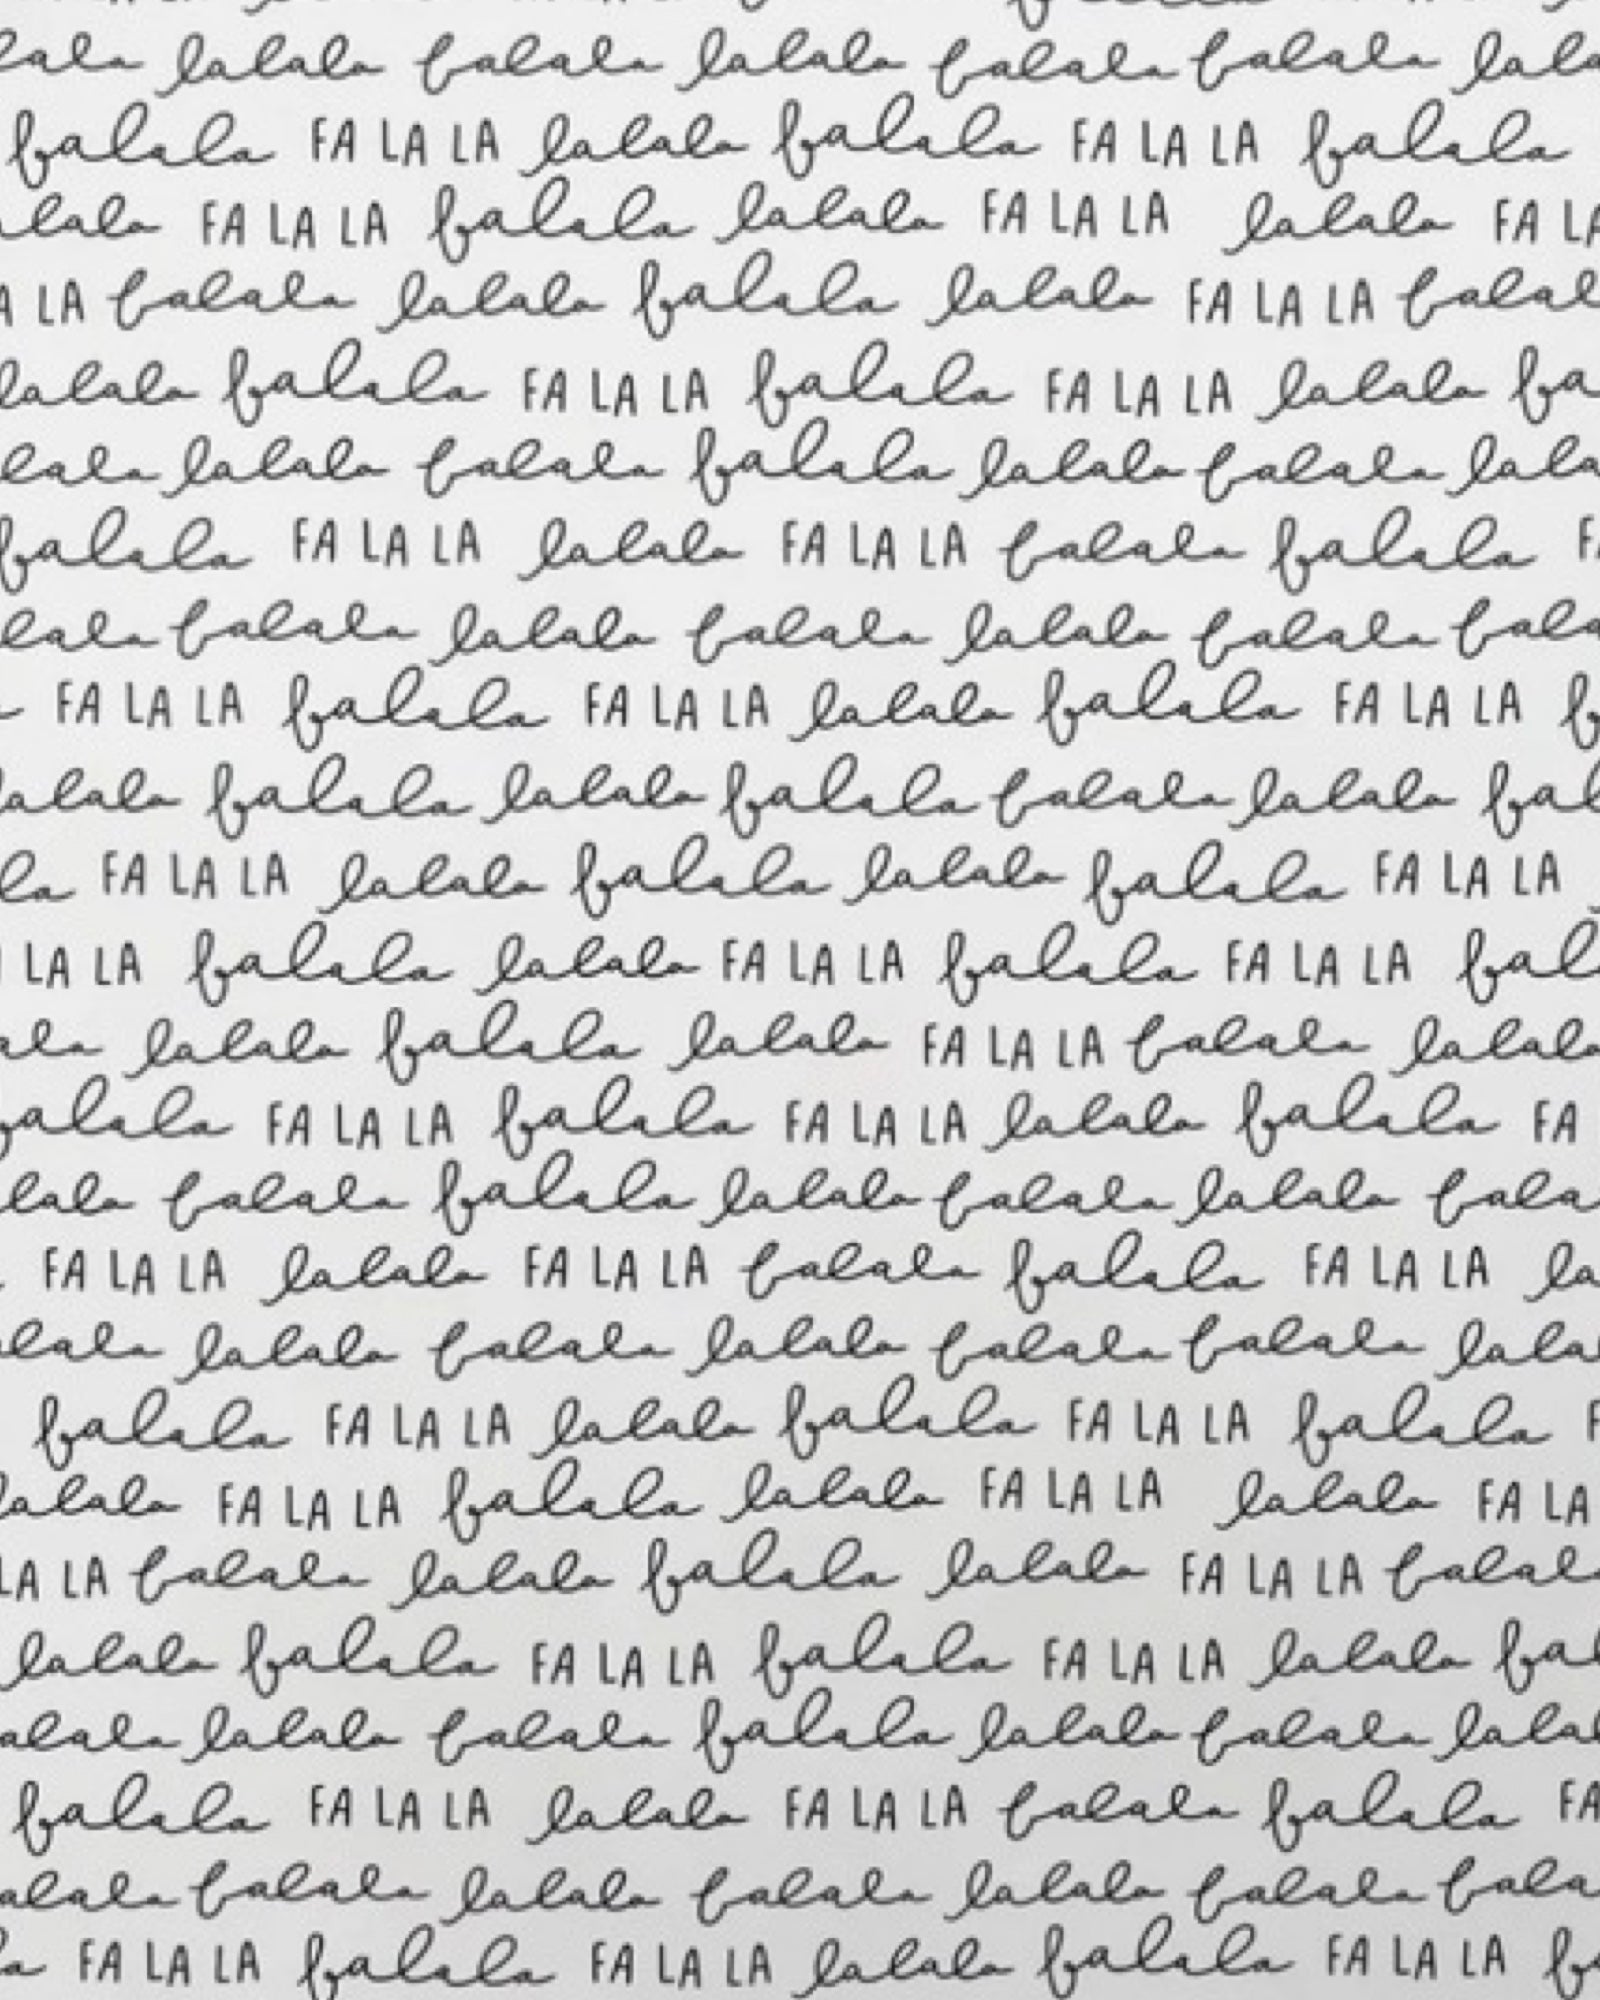 lalala falala lalala falala falala
falala FA LA LA lalala falala FA LA LA falala
FA LA LA falala lalala FA LA LA lalala FA LA
LA falala lalala falala lalala FA LA LA
lalala falala FA LA LA falala FA LA LA lalala
lalala falala falala lalala falala
falala FA LA LA lalala FA LA LA falala falala
falala lalala falala lalala falala
FA LA LA falala FA LA LA lalala falala FA LA LA
falala lalala falala falala lalala
FA LA LA lalala falala lalala falala FA LA LA
LA LA falala lalala FA LA LA falala FA LA LA
lalala falala lalala FA LA LA falala lalala
FA LA LA falala FA LA LA lalala falala FA
falala falala lalala falala lalala
FA LA LA lalala FA LA LA falala falala FA LA LA
lalala falala lalala falala falala
falala FA LA LA lalala falala FA LA LA falala
lalala FA LA LA falala lalala FA LA LA lalala FA LA
LA LA falala lalala falala lalala FA LA LA
lalala falala FA LA LA falala FA LA LA lalala
lalala falala falala lalala falala
falala FA LA LA lalala FA LA LA falala falala FA
falala lalala falala lalala falala
FA LA LA falala FA LA LA lalala falala FA LA LA